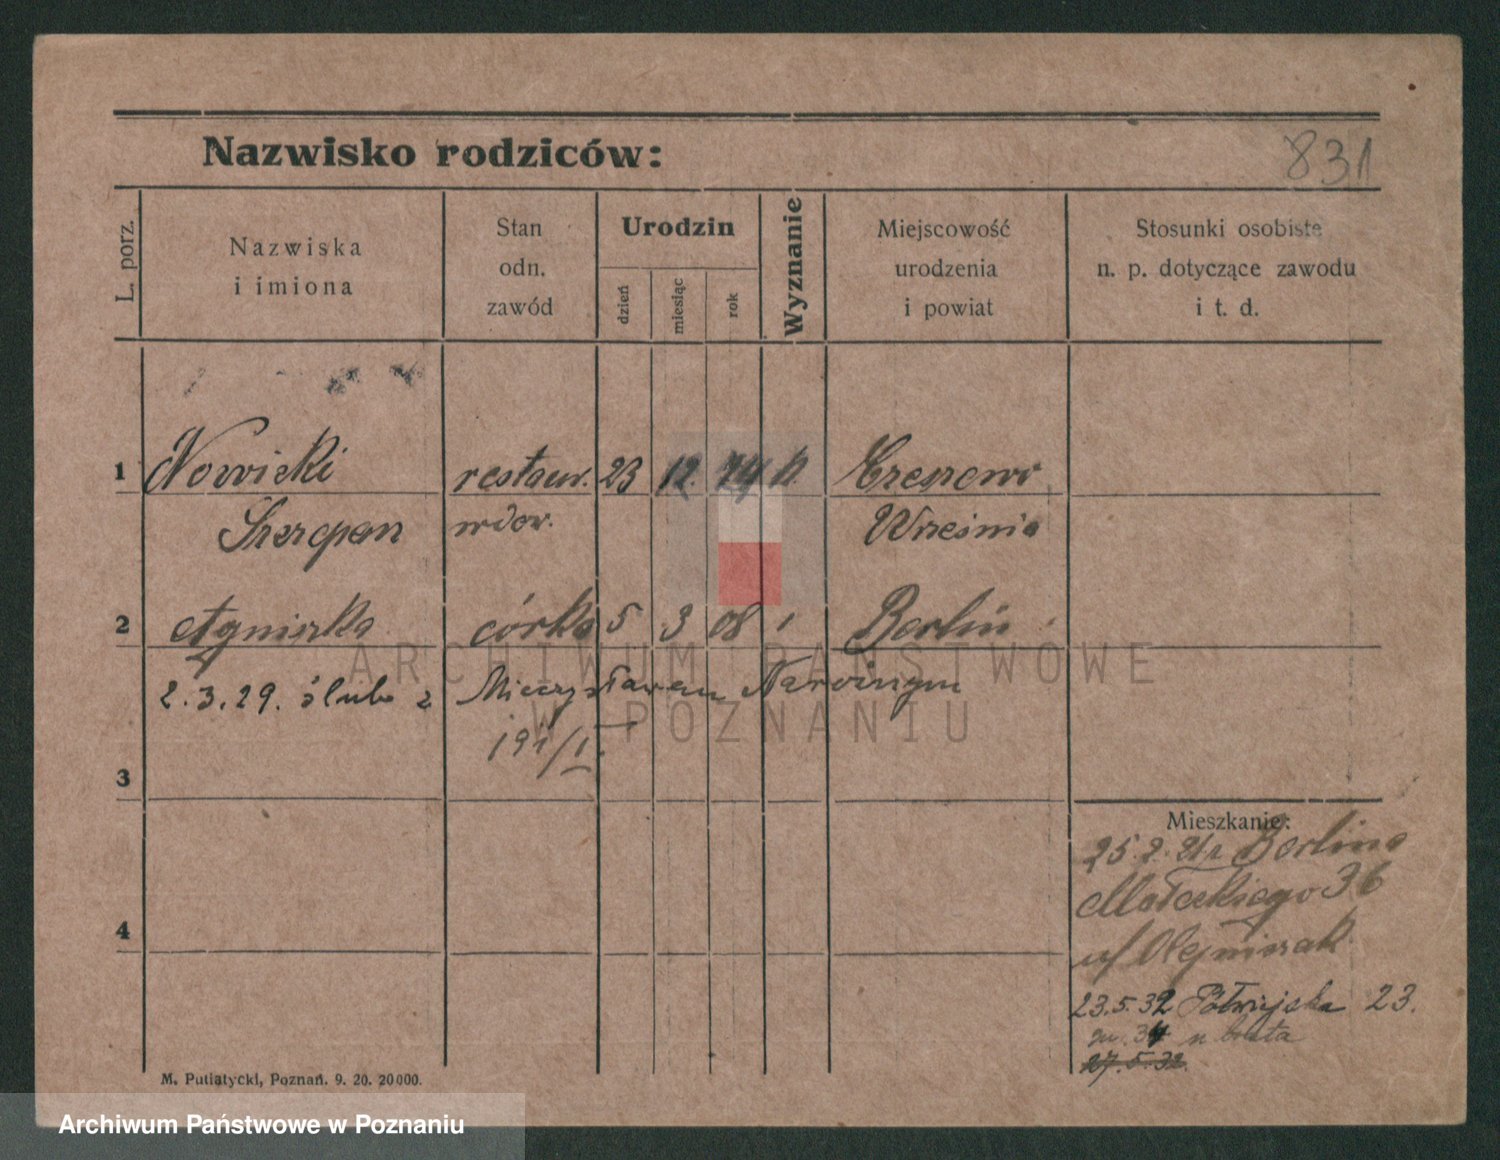 831
Nazwisko rodziców:
L. porz.
Nazwiska
i imiona
Stan
odn.
zawód
Urodzin
dzień
miesiąc
rok
Wyznanie
Miejscowość
urodzenia
i powiat
Stosunki osobiste
n. p. dotyczące zawodu
i t. d.
1 Nowicki restaur. 23 12. 74
Szczepan wdow. Września
2 Agnieszka córka 5 3 08 Berlin
2.3.29. ślub z Mieczysławem
3
4
Mieszkanie:
25.2.21 r. Berlina
Małeckiego 36
u/ Olejniczak
23.5.32 Półwiejska 23.
m. 34 u brata
27.5.32.
M. Putiatycki, Poznań. 9. 20. 20000.
ARCHIWUM PAŃSTWOWE
W POZNANIU
Archiwum Państwowe w Poznaniu